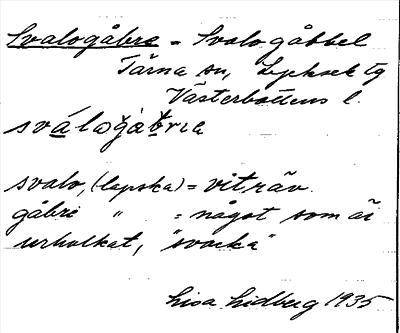 Svalogåbre = Svalogåbbel
Tärna sn, Lycksele tg
Västerbottens l.
svalogåbria
svalo, (lapska) = viträv.
gåbri " = något som är
urholkat, "svacka"
Lisa Lidberg 1935